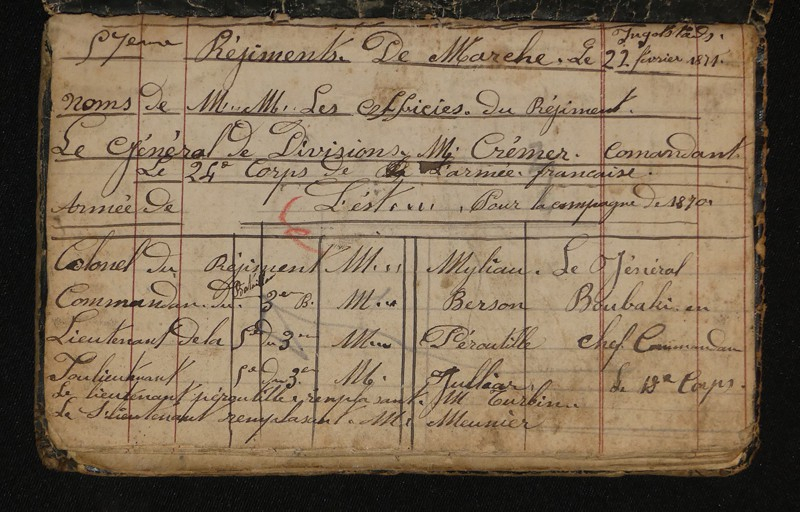 57eme Régiments. De Marche. Le 22 février 1871.
Ingolstads.
noms de M... M... Les officies. du Régiment.
Le Général de Divisions. M. Crémer. Comandant
Le 24e Corps de L'armée française.
Armée de L'est... Pour la compagne de 1870.
Colonel du Régiment M... Myliau. Le Jénéral
Commandan. du Bataillon 3em B. M... Berson Boubaki en
Lieutenant de la 5e du 3em M... Péroutille chef Commandan
Soulieutenant 5e du 3em M. Julliar Le 18e Corps.
Le lieutenant remplasant. M Turbin
Le S.lieutenant remplasant. M. Meunier